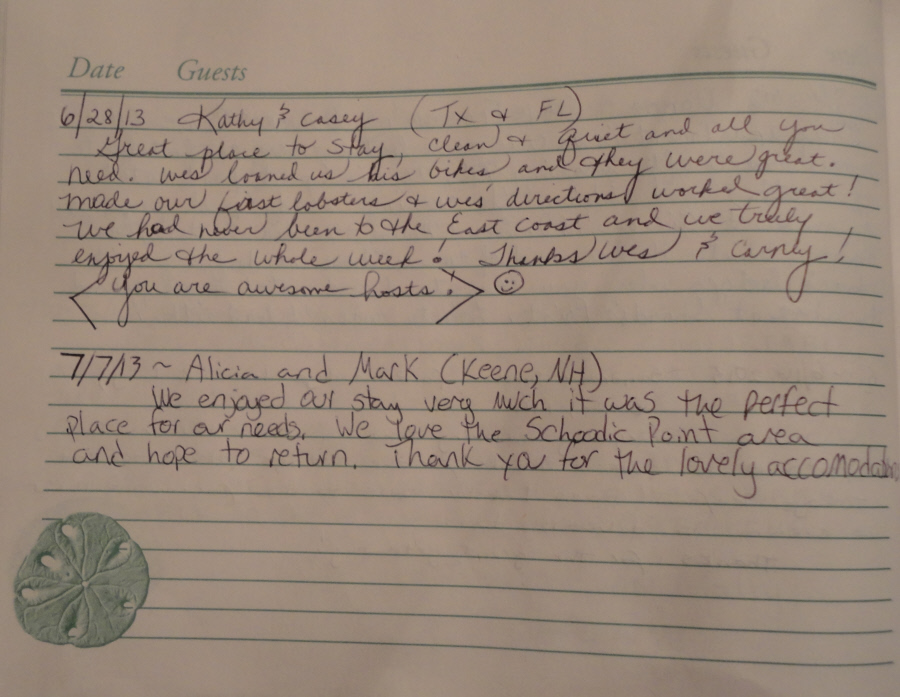 Date Guests
6/28/13 Kathy & Casey (TX & FL)
Great place to stay, clean & quiet and all you
need. Wes loaned us his bikes and they were great.
Made our first lobsters & Wes' directions worked great!
We had never been to the East Coast and we truly
enjoyed the whole week! Thanks Wes &
<You are awesome hosts!> ☺
7/7/13 ~ Alicia and Mark (Keene, NH)
We enjoyed our stay very much it was the perfect
place for our needs. We love the Schoodic Point area
and hope to return. Thank you for the lovely